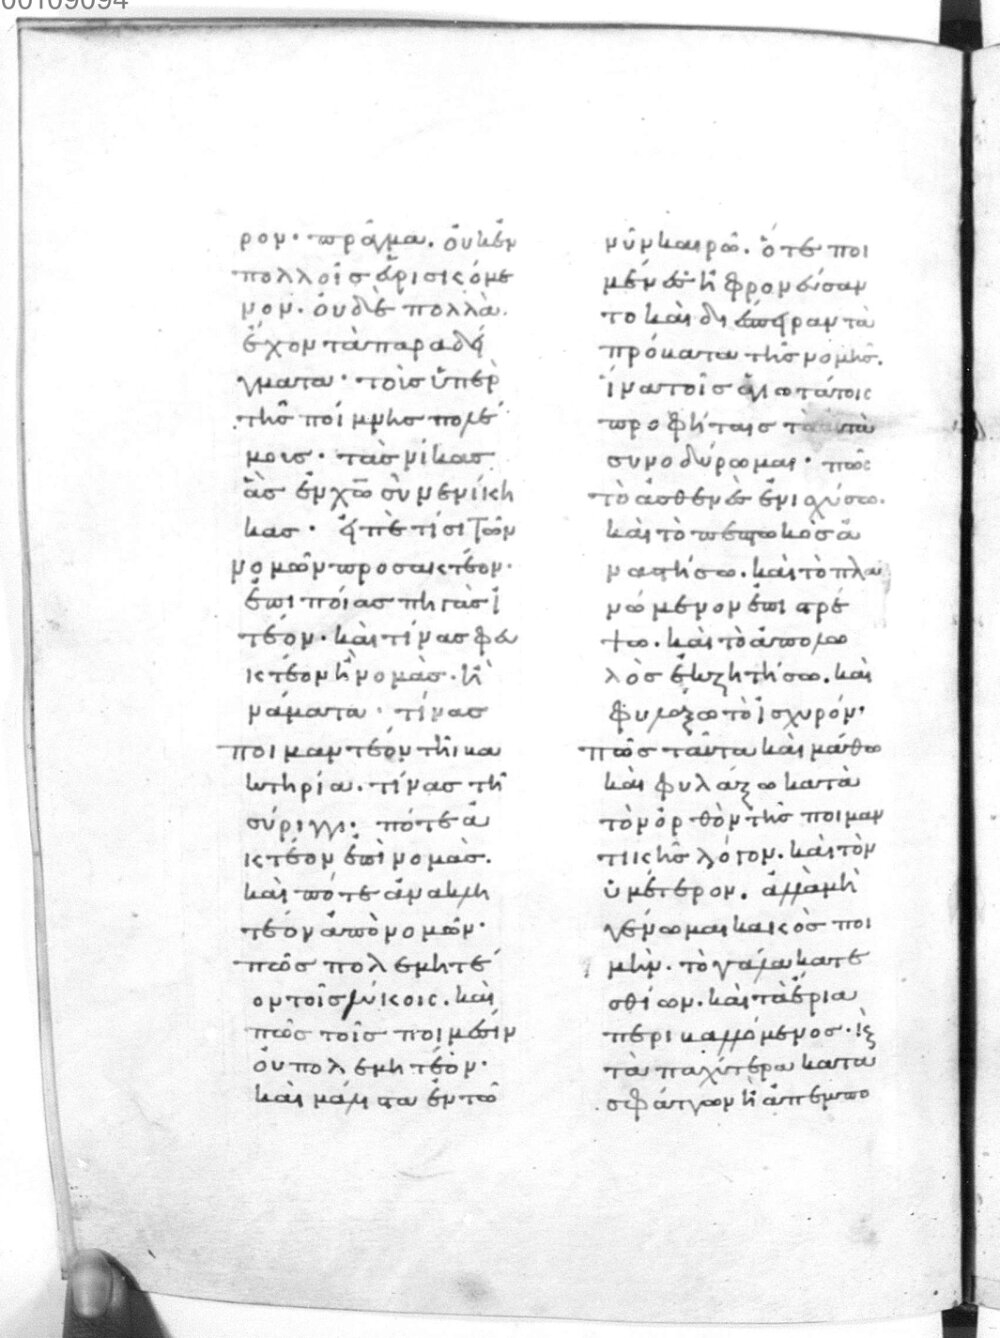 00109094
ρον· πρᾶγμα. οὐκ ἐν
πολλοῖς εὑρισκόμε
νον. οὐδὲ πολλὰ
ἔχον τὰ παραδεί
γματα· τοῖς ὑπὲρ
τῆς ποίμνης πολέ
μοις· τὰς νίκας
ἃς ἐν χω συνενίκη
κας· ἐπὶ τίσι τῶν
νομῶν προσακτέον·
ἐπὶ ποίας πηγὰς ἰ
τέον· καὶ τίνας φε
κτέον ἢ νομὰς· ἢ
νάματα· τίνας
ποιμαντέον τῆ βα
κτηρία. τίνας τῆ
σύριγγι· πότε ἀ
κτέον ἐπὶ νομὰς.
καὶ πότε ἀνακλη
τέον ἀπὸ νομῶν·
πῶς πολεμητέ
ον τοῖς λύκοις. καὶ
πῶς τοῖς ποιμέσιν
οὐ πολεμητέον·
καὶ μάλιστα ἐν τῶ
νῦν καιρῶ. ὅτε ποι
μένες ἠφρονεύσαν
το καὶ διέσπειραν τὰ
πρόβατα τῆς νομῆς.
ἵνα τοῖς ἁγιωτάτοις
προφήταις τὰ αὐτὰ
συνοδύρωμαι· πῶς
τὸ ἀσθενὲς ἐνισχύσω.
καὶ τὸ πεπτωκὸς ἀ
ναστήσω. καὶ τὸ πλα
νώμενον ἐπιστρέ
ψω. καὶ τὸ ἀπολω
λὸς ἐκζητήσω. καὶ
φυλάξω τὸ ἰσχυρόν·
πῶς ταῦτα καὶ μάθω
καὶ φυλάξω κατὰ
τὸν ὀρθὸν τῆς ποιμαν
τικῆς λόγον. καὶ τὸν
ὑμέτερον. ἀλλὰ μὴ
γένωμαι κακὸς ποι
μὴν. τὸ γάλα κατε
σθίων. καὶ τὰ ἔρια
περιβαλλόμενος· κ
τὰ παχύτερα κατα
σφάττων ἢ ἀπεμπο